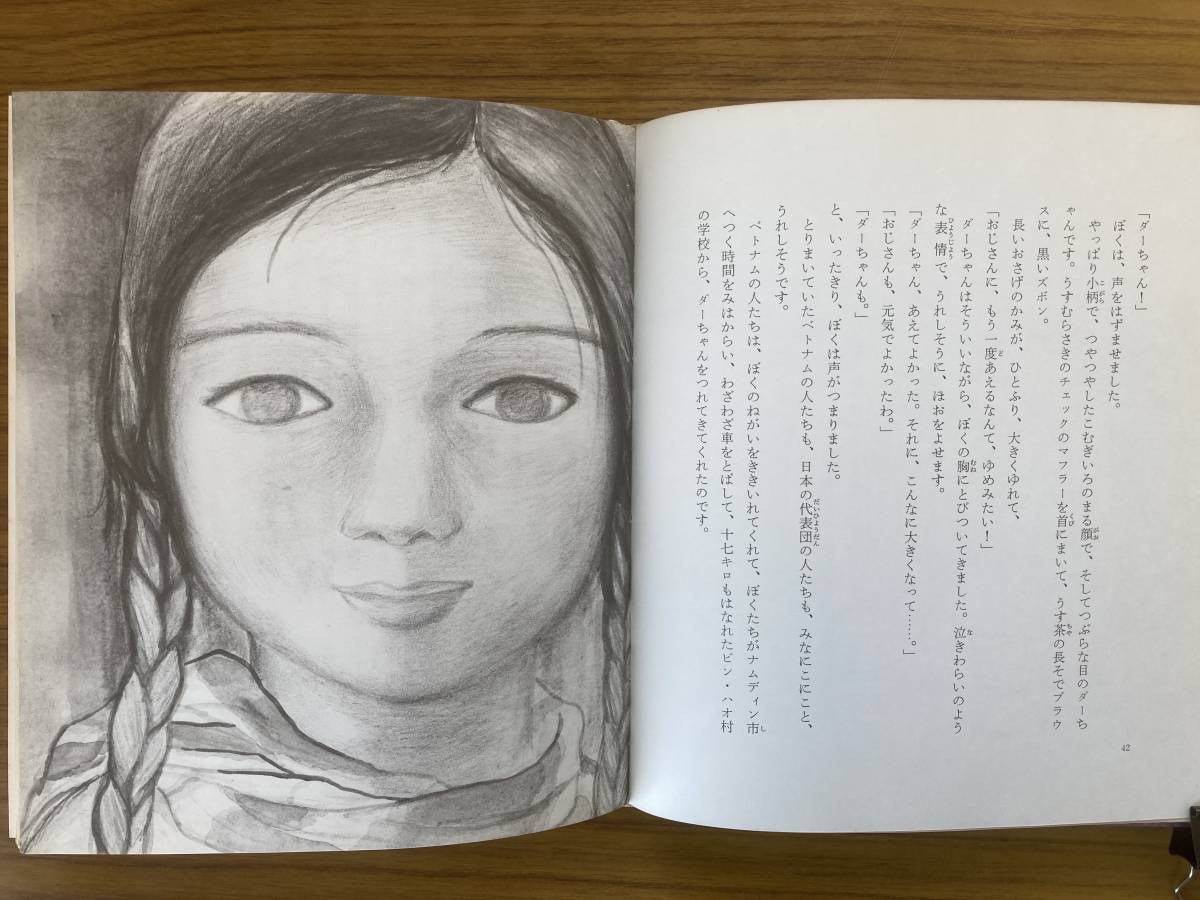 「ダーちゃん！」
ぼくは、声をはずませました。
やっぱり小柄で、つやつやしたこむぎいろのまる顔で、そしてつぶらな目のダーち
ゃんです。うすむらさきのチェックのマフラーを首にまいて、うす茶の長そでブラウ
スに、黒いズボン。
長いおさげのかみが、ひとふり、大きくゆれて、
「おじさんに、もう一度あえるなんて、ゆめみたい！」
ダーちゃんはそういいながら、ぼくの胸にとびついてきました。泣きわらいのよう
な表情で、うれしそうに、ほおをよせます。
「ダーちゃん、あえてよかった。それに、こんなに大きくなって……。」
「おじさんも、元気でよかったわ。」
「ダーちゃんも。」
と、いったきり、ぼくは声がつまりました。
とりまいていたベトナムの人たちも、日本の代表団の人たちも、みなにこにこと、
うれしそうです。
ベトナムの人たちは、ぼくのねがいをききいれてくれて、ぼくたちがナムディン市
へつく時間をみはからい、わざわざ車をとばして、十七キロもはなれたビン・ハオ村
の学校から、ダーちゃんをつれてきてくれたのです。
42